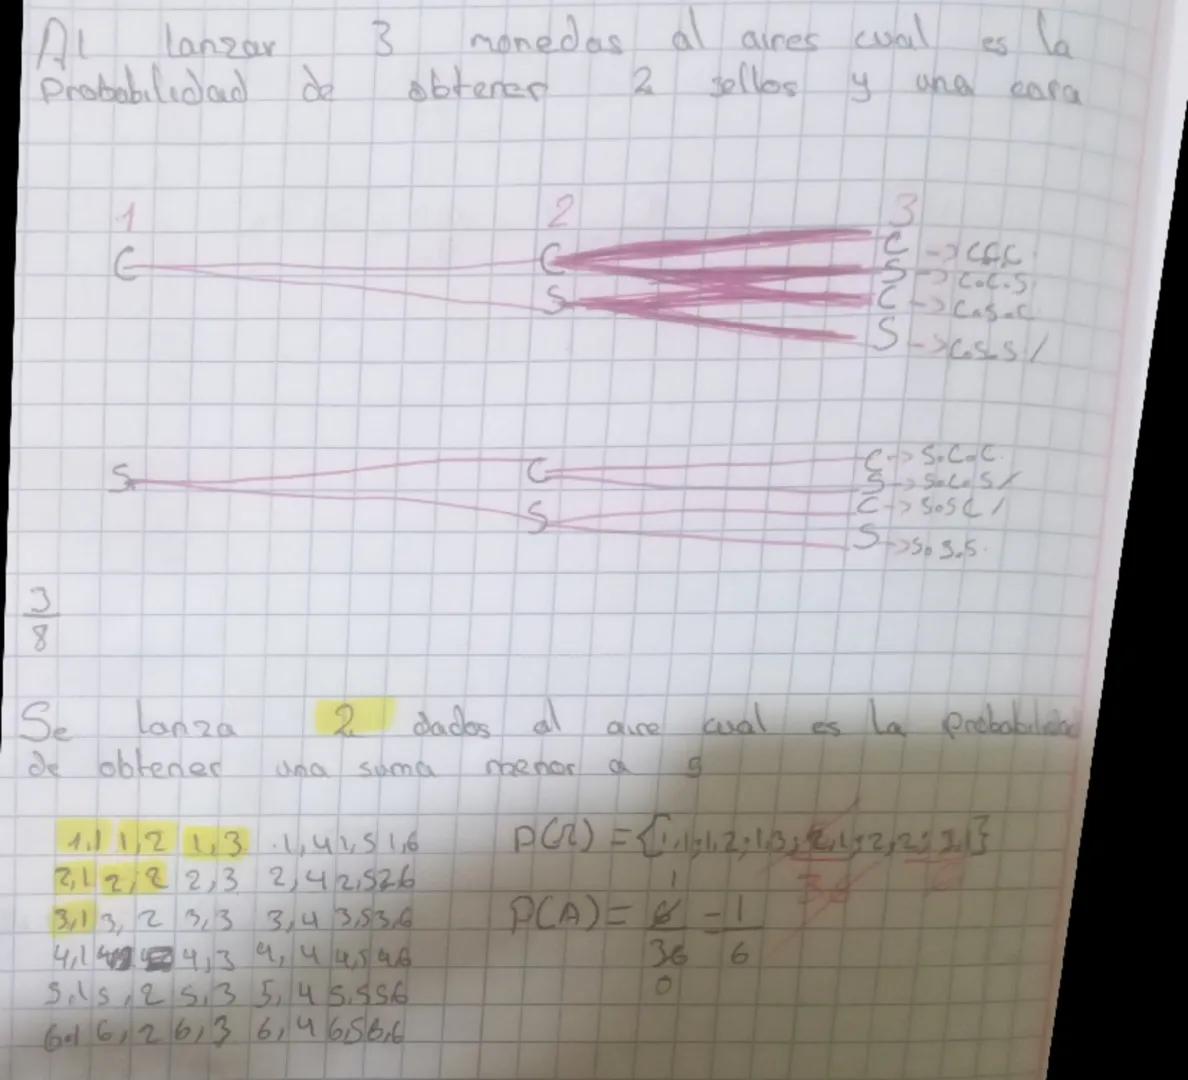 Al lanzar 3 monedas al aires cual es la
Probabilidad de obtener 2 sellos y una cara
1 2 3
C C C -> C.C.C.
S -> C.C.S.
S C -> C.S.C
S -> C.S.S /
S C C -> S.C.C.
S -> S.C.S /
S C -> S.S C /
S -> S.S.S.
3
8
Se lanza 2 dados al aire cual es la probabilidad
de obtener una suma menor a 5
1,1 1,2 1,3 1,4 1,5 1,6
2,1 2,2 2,3 2,4 2,5 2 6
3,1 3,2 3,3 3,4 3,5 3,6
4,1 4,3 4,4 4,5 4,6
5,1 5,2 5,3 5,4 5,5 5 6
6,1 6,2 6,3 6,4 6,5 6,6
P(Ω) = {1,1; 1,2; 1,3; 2,1; 2,2; 3,1}
36
1
P(A) = 6 = 1
36 6